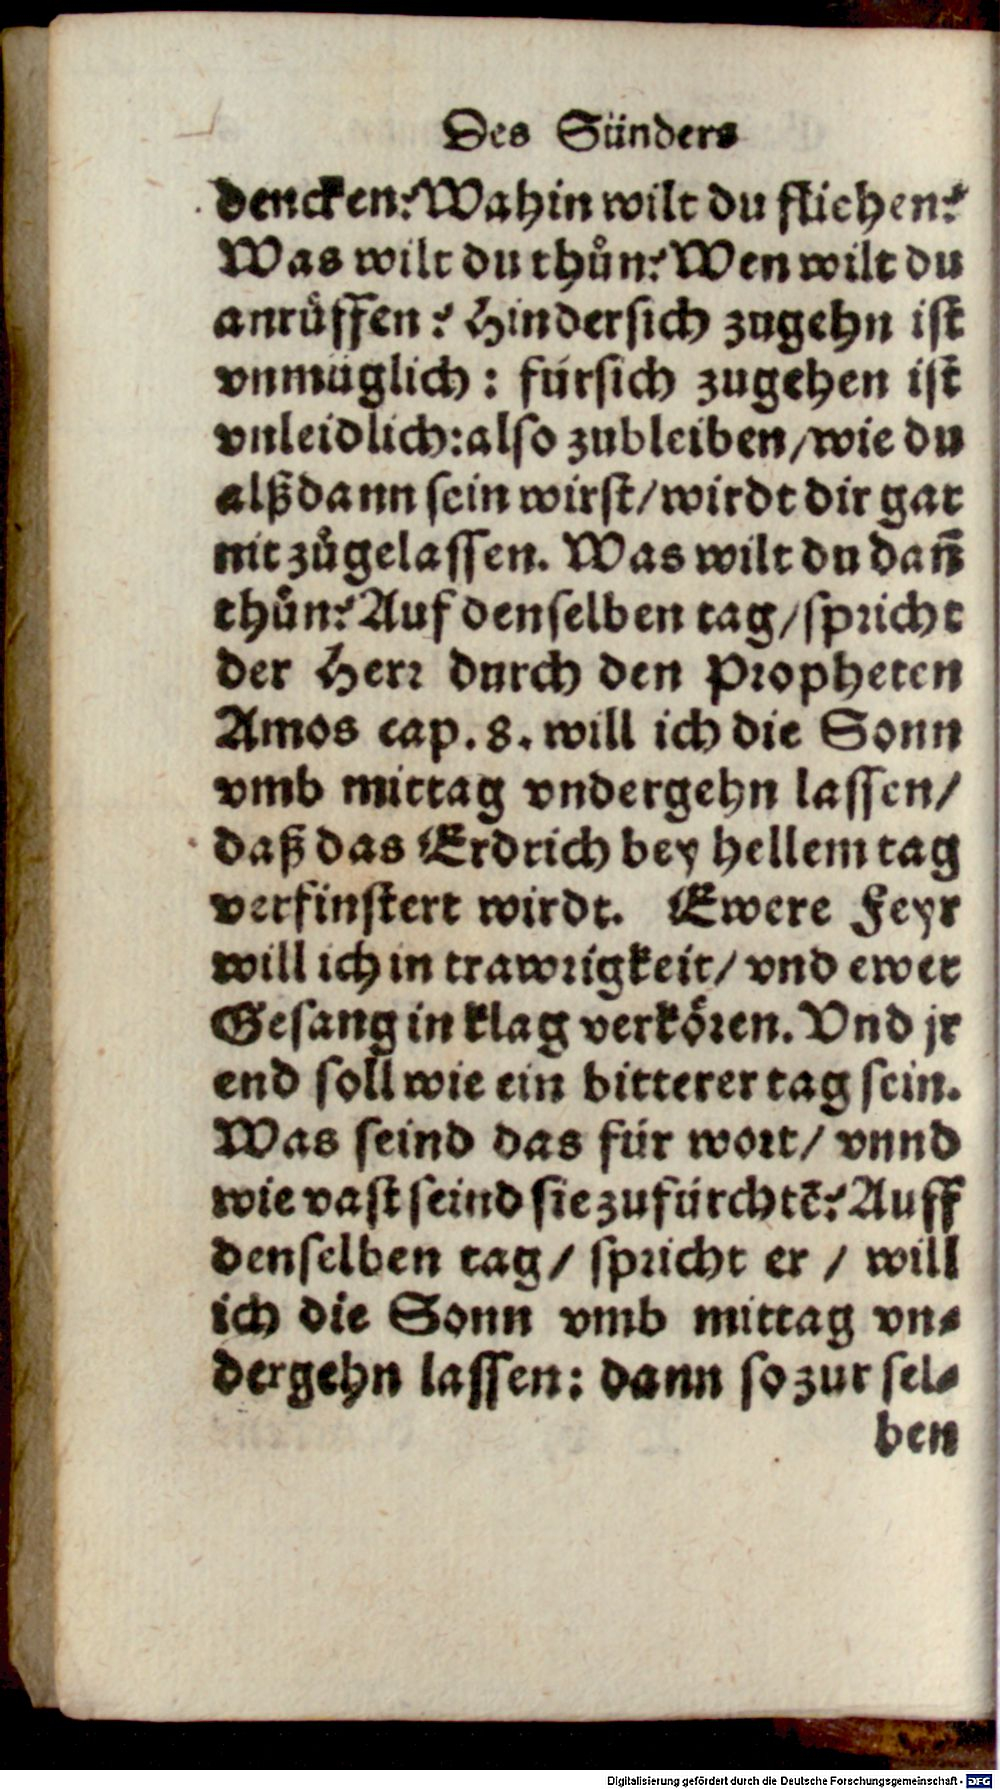 Des Sünders
dencken? Wahin wilt du fliehen?
Was wilt du thůn? Wen wilt du
anrůffen? Hindersich zugehn ist
vnmüglich: fürsich zugehen ist
vnleidlich: also zubleiben/ wie du
alßdann sein wirst/ wirdt dir gar
nit zůgelassen. Was wilt du dañ
thůn? Auf denselben tag/ spricht
der Herr durch den Propheten
Amos cap. 8. will ich die Sonn
vmb mittag vndergehn lassen/
daß das Erdrich bey hellem tag
verfinstert wirdt. Ewere Feyr
will ich in trawrigkeit/ vnd ewer
Gesang in klag verkören. Vnd jr
end soll wie ein bitterer tag sein.
Was seind das für wort/ vnnd
wie vast seind sie zufürchtē? Auff
denselben tag/ spricht er / will
ich die Sonn vmb mittag vn-
dergehn lassen: dann so zur sel-
ben
Digitalisierung gefördert durch die Deutsche Forschungsgemeinschaft - DFG